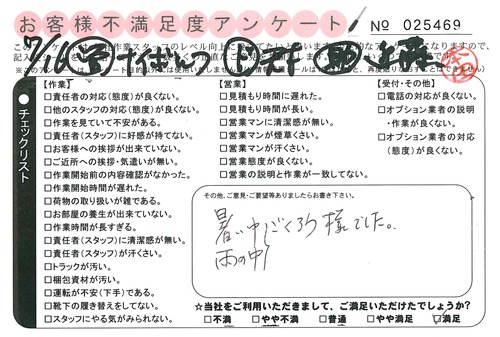 お客様不満足度アンケート
№ 025469
7/16
チェックリスト
【作業】
□責任者の対応(態度)が良くない。
□他のスタッフの対応(態度)が良くない。
□作業を見ていて不安がある。
□責任者(スタッフ)に好感が持てない。
□お客様への挨拶が出来ていない。
□ご近所への挨拶・気遣いが無い。
□作業開始前の内容確認がなかった。
□作業開始時間が遅れた。
□荷物の取り扱いが雑である。
□お部屋の養生が出来ていない。
□作業時間が長すぎる。
□責任者(スタッフ)に清潔感が無い。
□責任者(スタッフ)が汗くさい。
□トラックが汚い。
□梱包資材が汚い。
□運転が不安(下手)である。
□靴下の履き替えをしてない。
□スタッフにやる気がみられない。
【営業】
□見積もり時間に遅れた。
□見積もり時間が長い。
□営業マンに清潔感が無い。
□営業マンが煙草くさい。
□営業マンが汗くさい。
□営業態度が良くない。
□営業の説明と作業が一致してない。
【受付・その他】
□電話の対応が良くない。
□オプション業者の説明
・作業が良くない。
□オプション業者の対応
(態度)が良くない。
その他、ご意見・ご要望等ありましたらお書き下さい。
暑い中ごくろう様でした。
雨の中
☆当社をご利用いただきまして、ご満足いただけたでしょうか?
□不満 □やや不満 □普通 □やや満足 □満足